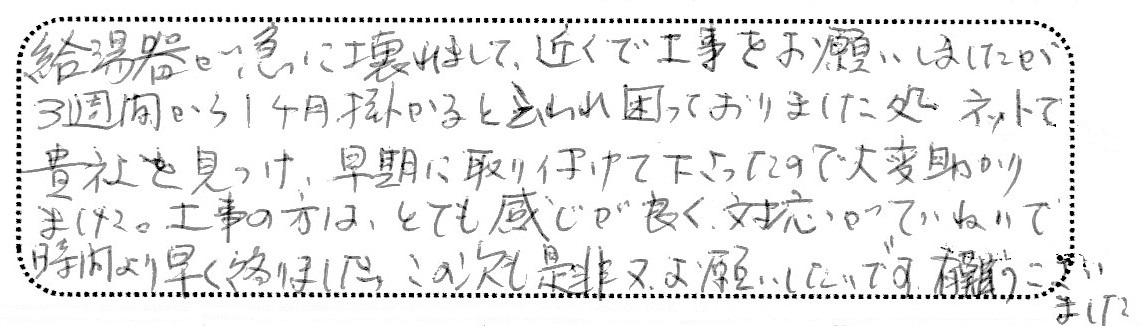 給湯器が急に壊れまして、近くで工事をお願いしましたが
3週間から1ヶ月掛かると言われ困っておりました処 ネットで
貴社を見つけ、早期に取り付けて下さったので大変助かり
ました。工事の方は、とても感じが良く、対応がていねいで
時間より早く終りました。この次も是非又お願いしたいです。有難うござい
ました